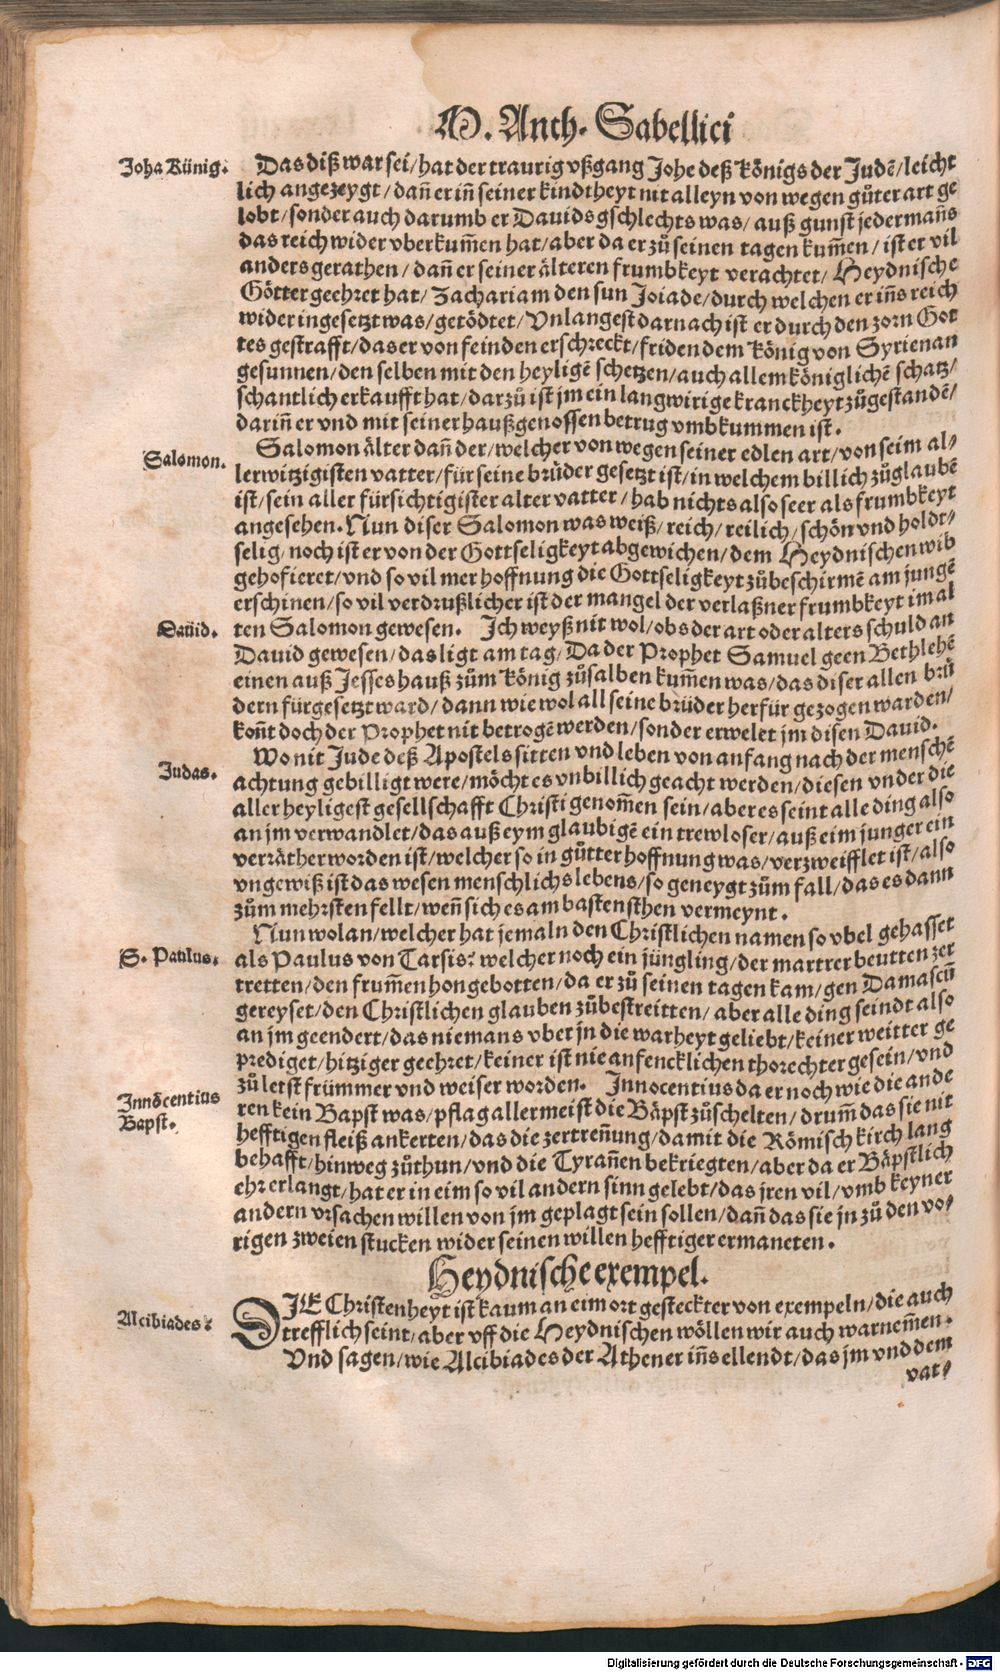 M. Anth. Sabellici
Joha Künig.
Das diß war sei/hat der traurig vßgang Johe deß Königs der Judẽ/leicht
lich angezeygt/dañ er iñ seiner kindtheyt nit alleyn von wegen gůter art ge
lobt/sonder auch darumb er Dauids gschlechts was/auß gunst jedermañs
das reich wider vberkum̃en hat/aber da er zů seinen tagen kum̃en/ist er vil
anders gerathen/dañ er seiner älteren frumbkeyt verachtet/Heydnische
Götter geehret hat/Zachariam den sun Joiade/durch welchen er iñs reich
wider ingesetzt was/getödtet/Vnlangest darnach ist er durch den zorn Got
tes gestrafft/das er von feinden erschreckt/friden dem König von Syrien an
gesunnen/den selben mit den heyligẽ schetzen/auch allem königlichẽ schatz/
schantlich erkaufft hat/darzů ist jm ein langwirige kranckheyt zůgestandẽ/
dariñ er vnd mit seiner haußgenossen betrug vmbkummen ist.
Salomon.
Salomon älter dañ der/welcher von wegen seiner edlen art/von seim al/
lerwitzigisten vatter/für seine brüder gesetzt ist/in welchem billich zůglaubẽ
ist/sein aller fürsichtigister alter vatter/hab nichts also seer als frumbkeyt
angesehen. Nun diser Salomon was weiß/reich/reilich/schön vnd holdt/
selig/noch ist er von der Gottseligkeyt abgewichen/dem Heydnischen wib
gehofieret/vnd so vil mer hoffnung die Gottseligkeyt zůbeschirmẽ am jungẽ
erschinen/so vil verdrußlicher ist der mangel der verlaßner frumbkeyt im al
Dauid.
ten Salomon gewesen. Ich weyß nit wol/obs der art oder alters schuld an
Dauid gewesen/das ligt am tag/Da der Prophet Samuel geen Bethlehẽ
einen auß Jesses hauß zům König zůsalben kum̃en was/das diser allen brů
dern fürgesetzt ward/dann wiewol all seine brüder herfür gezogen warden/
koñt doch der Prophet nit betrogẽ werden/sonder erwelet jm disen Dauid.
Judas.
Wo nit Jude deß Apostels sitten vnd leben von anfang nach der menschẽ
achtung gebilligt were/möcht es vnbillich geacht werden/diesen vnder die
aller heyligest gesellschafft Christi genom̃en sein/aber es seint alle ding also
an jm verwandlet/das auß eym glaubigẽ ein trewloser/auß eim junger ein
verräther worden ist/welcher so in gůtter hoffnung was/verzweifflet ist/also
vngewiß ist das wesen menschlichs lebens/so geneygt zům fall/das es dann
zům mehrsten fellt/weñ sich es am basten sthen vermeynt.
S. Paulus.
Nun wolan/welcher hat jemaln den Christlichen namen so vbel gehasset
als Paulus von Tarsis? welcher noch ein jüngling/der martrer beutten zer
tretten/den frum̃en hon gebotten/da er zů seinen tagen kam/gen Damascũ
gereyset/den Christlichen glauben zůbestreitten/aber alle ding seindt also
an jm geendert/das niemans vber jn die warheyt geliebt/keiner weitter ge
prediget/hitziger geehret/keiner ist nie anfencklichen thorechter gesein/vnd
Innõcentius
Bapst.
zů letst frümmer vnd weiser worden. Innocentius da er noch wie die ande
ren kein Bapst was/pflag allermeist die Bäpst zůschelten/drum̃ das sie nit
hefftigen fleiß ankerten/das die zertreñung/damit die Römisch kirch lang
behafft/hinweg zůthun/vnd die Tyrañen bekriegten/aber da er Bäpstlich
ehr erlangt/hat er in eim so vil andern sinn gelebt/das jren vil/vmb keyner
andern vrsachen willen von jm geplagt sein sollen/dañ das sie jn zů den vo/
rigen zweien stucken wider seinen willen hefftiger ermaneten.
Heydnische exempel.
Alcibiades.
DIE Christenheyt ist kaum an eim ort gesteckter von exempeln/die auch
trefflich seint/aber vff die Heydnischen wöllen wir auch warnem̃en.
Vnd sagen/wie Alcibiades der Athener iñs ellendt/das jm vnd dem
vat/
Digitalisierung gefördert durch die Deutsche Forschungsgemeinschaft - DFG